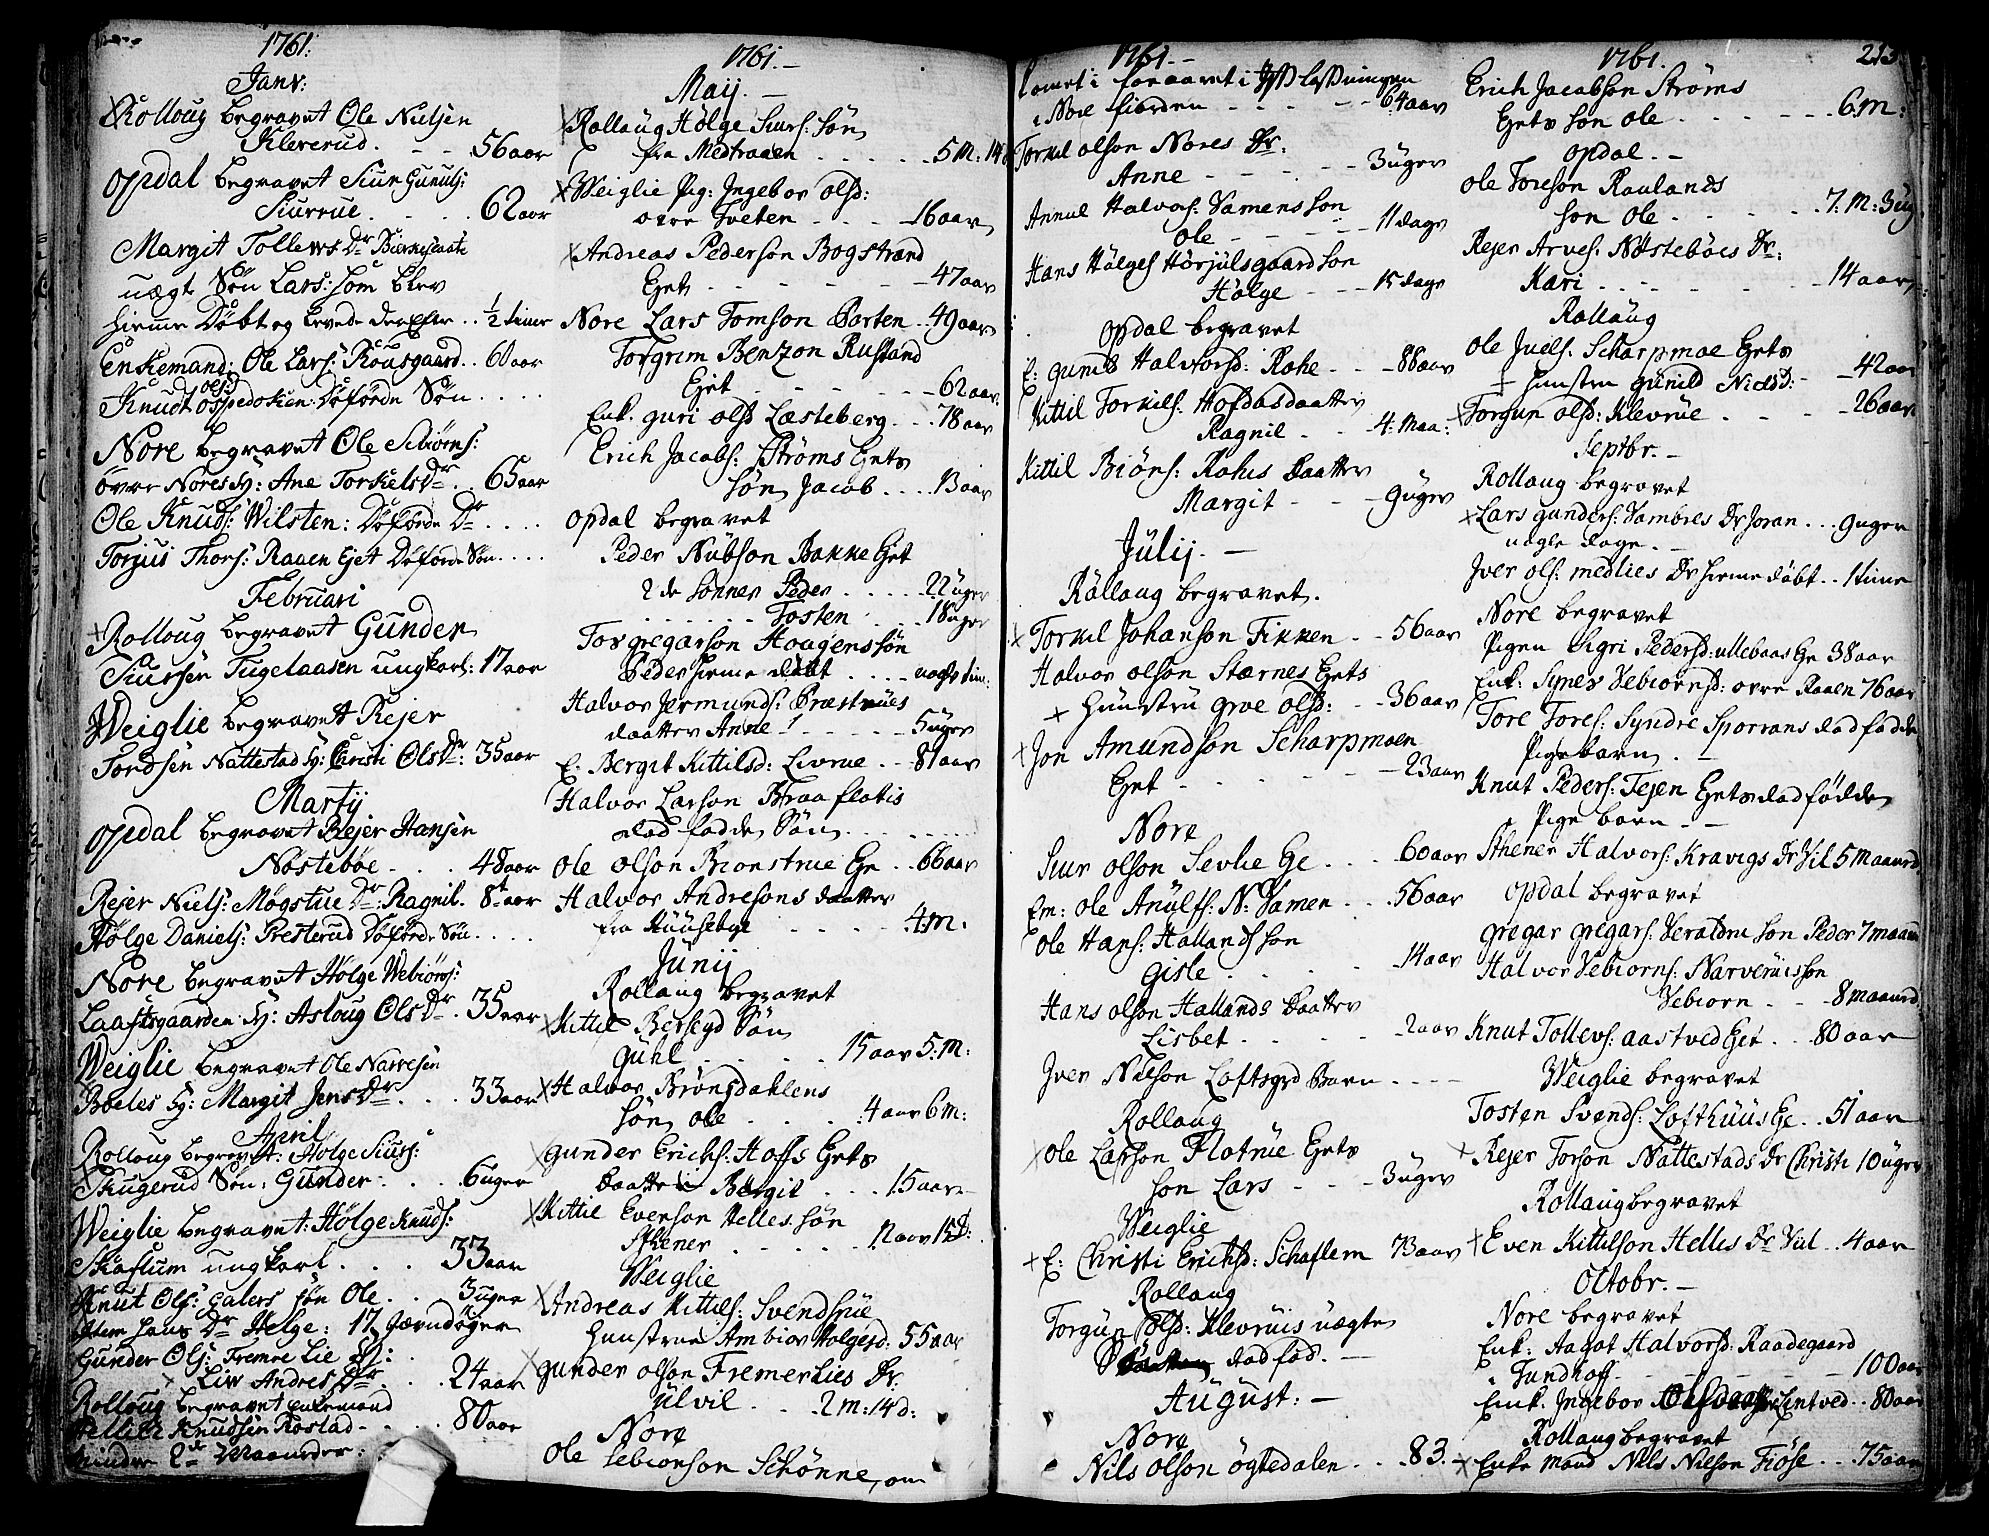 1761:
Janv:
Rolloug begravet Ole Nielsen
Kleverud . . . 56 aar
Opdal begravet Siur Gunulfs:
Siurrue . . . 62 aar
Margit Tollevs Dr
uægte Søn Lars: som blev
hiemme Døbt og levede derefter . . ½ time
Enkemand: Ole Lars: Rousgaard . . 60 aar
Knudt olss: Døføde Søn . . . .
Nore begravet Ole Sebiørns:
øvre Nores Hs: Ane Torkels Dr . . 65 aar
Ole Knuds: Wilsten: Døføde Dr . . . .
Torjus Thors: Raaen Ejet Døføde Søn . . . .
Februari
Rolloug begravet Gunder
Siursen Tugelaasen ungkarl: 17 aar
Weiglie begravet Rejer
Tordsen Nattestad Hs: Christi Ols Dr: 35 aar
Martij
Opdal begravet Rejer Hansen
Nøstebøe . . . . 48 aar
Rejer Niels: Møgstue Dr: Ragnil. 8t aar
Hølge Daniels: Presterud Døføde Søn . . . .
Nore begravet Hølge Webiørns:
Laaftsgaarden Hs: Asloug Ols Dr . 35 aar
Weiglie begravet Ole Narvesen
Bøeles Hs: Margit Jens Dr . . . 33 aar
April
Rolloug begravet: Hølge Siurs:
Skugerud Søn: Gunder: . . 6 uger
Weiglie begravet: Hølge Knuds:
Skaflum ungkarl . . . . 33 aar
Knut Ols: Galers søn Ole . . 3 uger
Item hans Dr Helge: 17 Jævndøger
Gunder Ols: Fremre Lie Hs:
Liw Andres Dr . . . 24 aar
Rolloug begravet enkemand
Knudsen Rostad . . . . 80 aar
mindre 2de Maaneder:
1761. —
Maij. —
Rollaug Hølge Siurs: Søn
fra Medtraaen . . . . . 5 M: 14 d
Weiglie Pig: Ingebor olsd:
øvre Tveten . . . . 16 aar
Andreas Pederson Bogstrand
Eget . . . . . . . 47 aar
Nore Lars Tomson Porten . . 49 aar
Torgrim Benzon Rustand
Eget . . . . . . 62 aar
Enk. guri olsd Læsteberg . . . 78 aar
Erich Jacobs: Strøms Gets
søn Jacob . . . 13 aar
Opdal begravet
Peder Nubson Bakke Eget
2de sønner Peder . . . . . 22 uger
. . . . . . . Tosten . . . 18 uger
Tor gregarson Hoagens søn
Peder hieme døbt . . . . nogle tim:
Halvor Jermunds: Præstrues
daatter Anne . . . . . . 5 uger
E: Bergit Kittilsd: Livrue . . 81 aar
Halvor Larson Braaflatis
dødfødde Søn . . . . . . .
Ole olson Bionstrue Ge . . 66 aar
Halvor Andresons daatter
fra Huusebye . . . . . . 4 m.
Junij
Rollaug begravet
Kittil Bersegd Søn
guhl . . . . . 15 aar 5: M:
Halvor Brøngdahlens
søn ole . . . . . 4 aar 6 m:
gunder Erichs: Hoffs Gets
Daatter Bergit . . . 15 aar
Kittil Evenson Helles søn
Sthener . . . . . 12 aar 15 d:
Weiglie
Andreas Kittils: Svendsrue
hunstrue Ambior Holgesd: 55 aar
gunder olson Fremerlies Dr:
Ulvil . . . 2 m: 14 d:
Nore
Ole Sebionson Schønne, om
1761. —
komet i foraaret i
i Nore fiorden . . . . . 64 aar
Torkel olson Nores Dr:
Anne . . . . . 3 uger
Annul Halvors: Vamens søn
ole . . . . . . 11 dage
Hans Hølges Hørjulsgaard søn
Hølge . . . 15 dage
Opdal begravet
E: gunild Halvorsd: Rohe . . . 88 aar
Kittil Torkils: Hofdasdaatter
Ragnil . . . 4: Maa:
Kittil Biøns: Rohes daatter
Margit . . . 9 uger
Julij. —
Rollaug begravet.
Torkil Johanson Fikken . . . 56 aar
Halvor olson Stærnes Gets
Hunstru groe olsd: . . 36 aar
Jon Amundson Scharpmoen
Eget . . . . . . . 23 aar
Nore
Siur olson Sevlie Ge . . . 60 aar
Em: ole Anulfs: N: Vamen . . . 56 aar
Ole Hans: Hallands søn
Gisle . . . . . . 14 aar
Hans olson Hallands Daatter
Lisbet . . . . . 2 aar
Iver Nielson Loftsgrd Barn . . . .
Rollaug
Ole Larson Flotrue Gets
søn Lars . . . 3 uger
Weiglie
E: Christi Erichsd: Schaflem 73 aar
Rollaug
Torgun olsd: Klevruis uægte
dødfød. —
August: —
Nore
Nils olson øgtedalen . . . 83. —
1761.
213
Erich Jacobson Strøms
Gets søn ole . . . . . . . 6 m:
Opdal. —
Ole Toreson Raulands
søn ole . . . . . 7: M: 3 ug
Rejer Arves: Nøstebøes Dr:
Kari . . . . . . . 14 aar
Rollaug
Ole Juels: Scharpmoe Gets
hunstru gunild Nielsd: . . 42 aar
Torgun olsd: Klevrue . . . . 26 aar
Septbr. —
Rollaug begravet
Lars gunders: Vambres Dr Joran . . . 9 uger
nogle dage. —
Iver ols: medlies Dr hieme døbt . . 1 time
Nore begravet
Pigen Sigri Pedersd: ullebaas Ge 38 aar
Enk: Synev Vebiornsd: øvre Raaen 76 aar
Tore Tores: Syndre Sporrans dødfødde
Pigebarn. —
Knut Peders: Tejen Gets dødfødde
Pige barn. —
Sthener Halvors: Kravigs Dr Vil 5 Maaned
Opdal begravet
gregar gregars: Veraldrue søn Peder 7 maan
Halvor Vebiorns: Narverues søn
Vebiorn . . . 8 maaned
Knut Tollevs: aastved Get . . 80 aar
Weiglie begravet
Tosten Svends: Lofthuus Ge . . 51 aar
Rejer Torson Nattestads Dr Christi 10 uger
Rollaug begravet
Even Kittilson Helles Dr Vil . . 4 aar
Octobr. —
Nore begravet
Enk: Aagot Halvorsd: Raadegaard
i Tundhoff . . . . . . . 100 aar
Enk. Ingebor Eintved . . 80 aar
Rollaug begravet
Enke mand Nils Nilson Fiøse . . . 75 aar